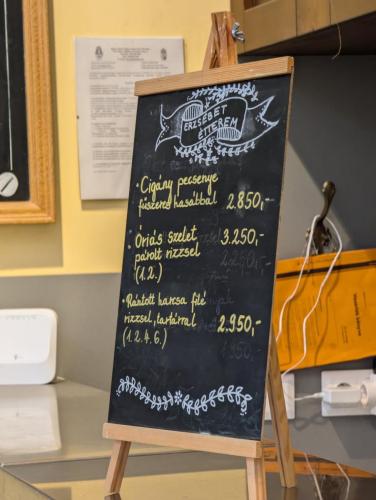 ERZSÉBET
ÉTTEREM
• Cigány pecsenye
fűszeres hasábbal 2.850,-
• Óriás szelet 3.250,-
párolt rizzsel
(1.2.)
• Rántott harcsa filé
rizzsel, tartárral 2.950,-
(1.2.4.6.)